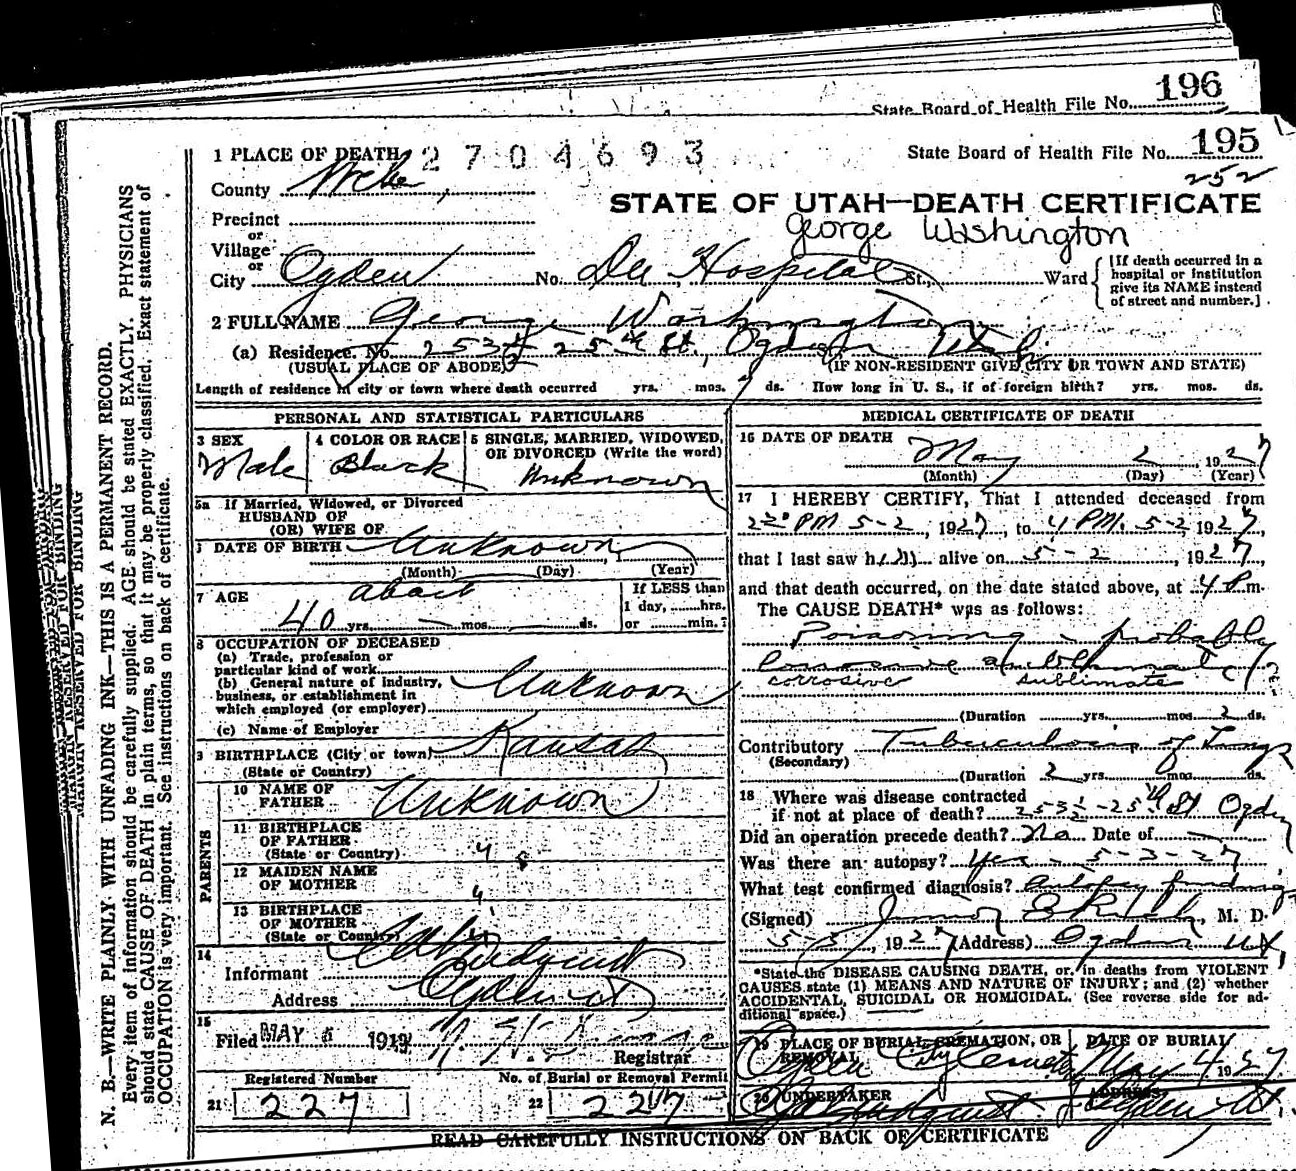 State Board of Health File No. 196
State Board of Health File No. 195
252
1 PLACE OF DEATH 2704693
County
STATE OF UTAH—DEATH CERTIFICATE
George Washington
Precinct
or
Village
or
City Ogden No. Dee Hospital St., Ward
[If death occurred in a
hospital or institution
give its NAME instead
of street and number.]
2 FULL NAME George Washington
(a) Residence. No. 253½ 25th St., Ogden Utah
(USUAL PLACE OF ABODE) (IF NON-RESIDENT GIVE CITY OR TOWN AND STATE)
Length of residence in city or town where death occurred yrs. mos. ds. How long in U. S., if of foreign birth? yrs. mos. ds.
PERSONAL AND STATISTICAL PARTICULARS
3 SEX
Male
4 COLOR OR RACE
Black
5 SINGLE, MARRIED, WIDOWED,
OR DIVORCED (Write the word)
Unknown
5a If Married, Widowed, or Divorced
HUSBAND OF
(OR) WIFE OF
DATE OF BIRTH Unknown
(Month) (Day) (Year)
7 AGE about
40 yrs. mos. ds.
If LESS than
1 day, hrs.
or min.?
8 OCCUPATION OF DECEASED
(a) Trade, profession or
particular kind of work
(b) General nature of industry,
business, or establishment in
which employed (or employer)
Unknown
(c) Name of Employer
9 BIRTHPLACE (City or town) Kansas
(State or Country)
PARENTS
10 NAME OF
FATHER Unknown
11 BIRTHPLACE
OF FATHER
(State or Country) "
12 MAIDEN NAME
OF MOTHER "
13 BIRTHPLACE
OF MOTHER
(State or Country) "
14
Informant Lindquist
Address Ogden Ut
15
Filed MAY 191
Registrar
Registered Number
21 227
No. of Burial or Removal Permit
22 227
MEDICAL CERTIFICATE OF DEATH
16 DATE OF DEATH
May 2, 1927
(Month) (Day) (Year)
17 I HEREBY CERTIFY, That I attended deceased from
PM 5-2, 1927, to 4 PM. 5-2, 1927,
that I last saw him alive on 5-2, 1927,
and that death occurred, on the date stated above, at 4 P.m.
The CAUSE DEATH* was as follows:
Poisoning - probably
corrosive sublimate
corrosive sublimate
(Duration yrs. mos. 2 ds.
Contributory Tuberculosis of Lungs
(Secondary)
(Duration 2 yrs. mos. ds.
18 Where was disease contracted
if not at place of death? 253½-25th St Ogden
Did an operation precede death? No Date of
Was there an autopsy? Yes - 5-3-27
What test confirmed diagnosis? Autopsy findings
(Signed) M. D.
1927 (Address) Ogden Ut,
*State the DISEASE CAUSING DEATH, or, in deaths from VIOLENT
CAUSES state (1) MEANS AND NATURE OF INJURY; and (2) whether
ACCIDENTAL, SUICIDAL OR HOMICIDAL. (See reverse side for ad-
ditional space.)
19 PLACE OF BURIAL, CREMATION, OR
REMOVAL
Ogden City Cemetery
DATE OF BURIAL
May 4 1927
20 UNDERTAKER
Lindquist
ADDRESS
Ogden Ut.
READ CAREFULLY INSTRUCTIONS ON BACK OF CERTIFICATE
N. B.—WRITE PLAINLY WITH UNFADING INK—THIS IS A PERMANENT RECORD.
Every item of information should be carefully supplied. AGE should be stated EXACTLY. PHYSICIANS
should state CAUSE OF DEATH in plain terms, so that it may be properly classified. Exact statement of
OCCUPATION is very important. See instructions on back of certificate.
MARGIN RESERVED FOR BINDING